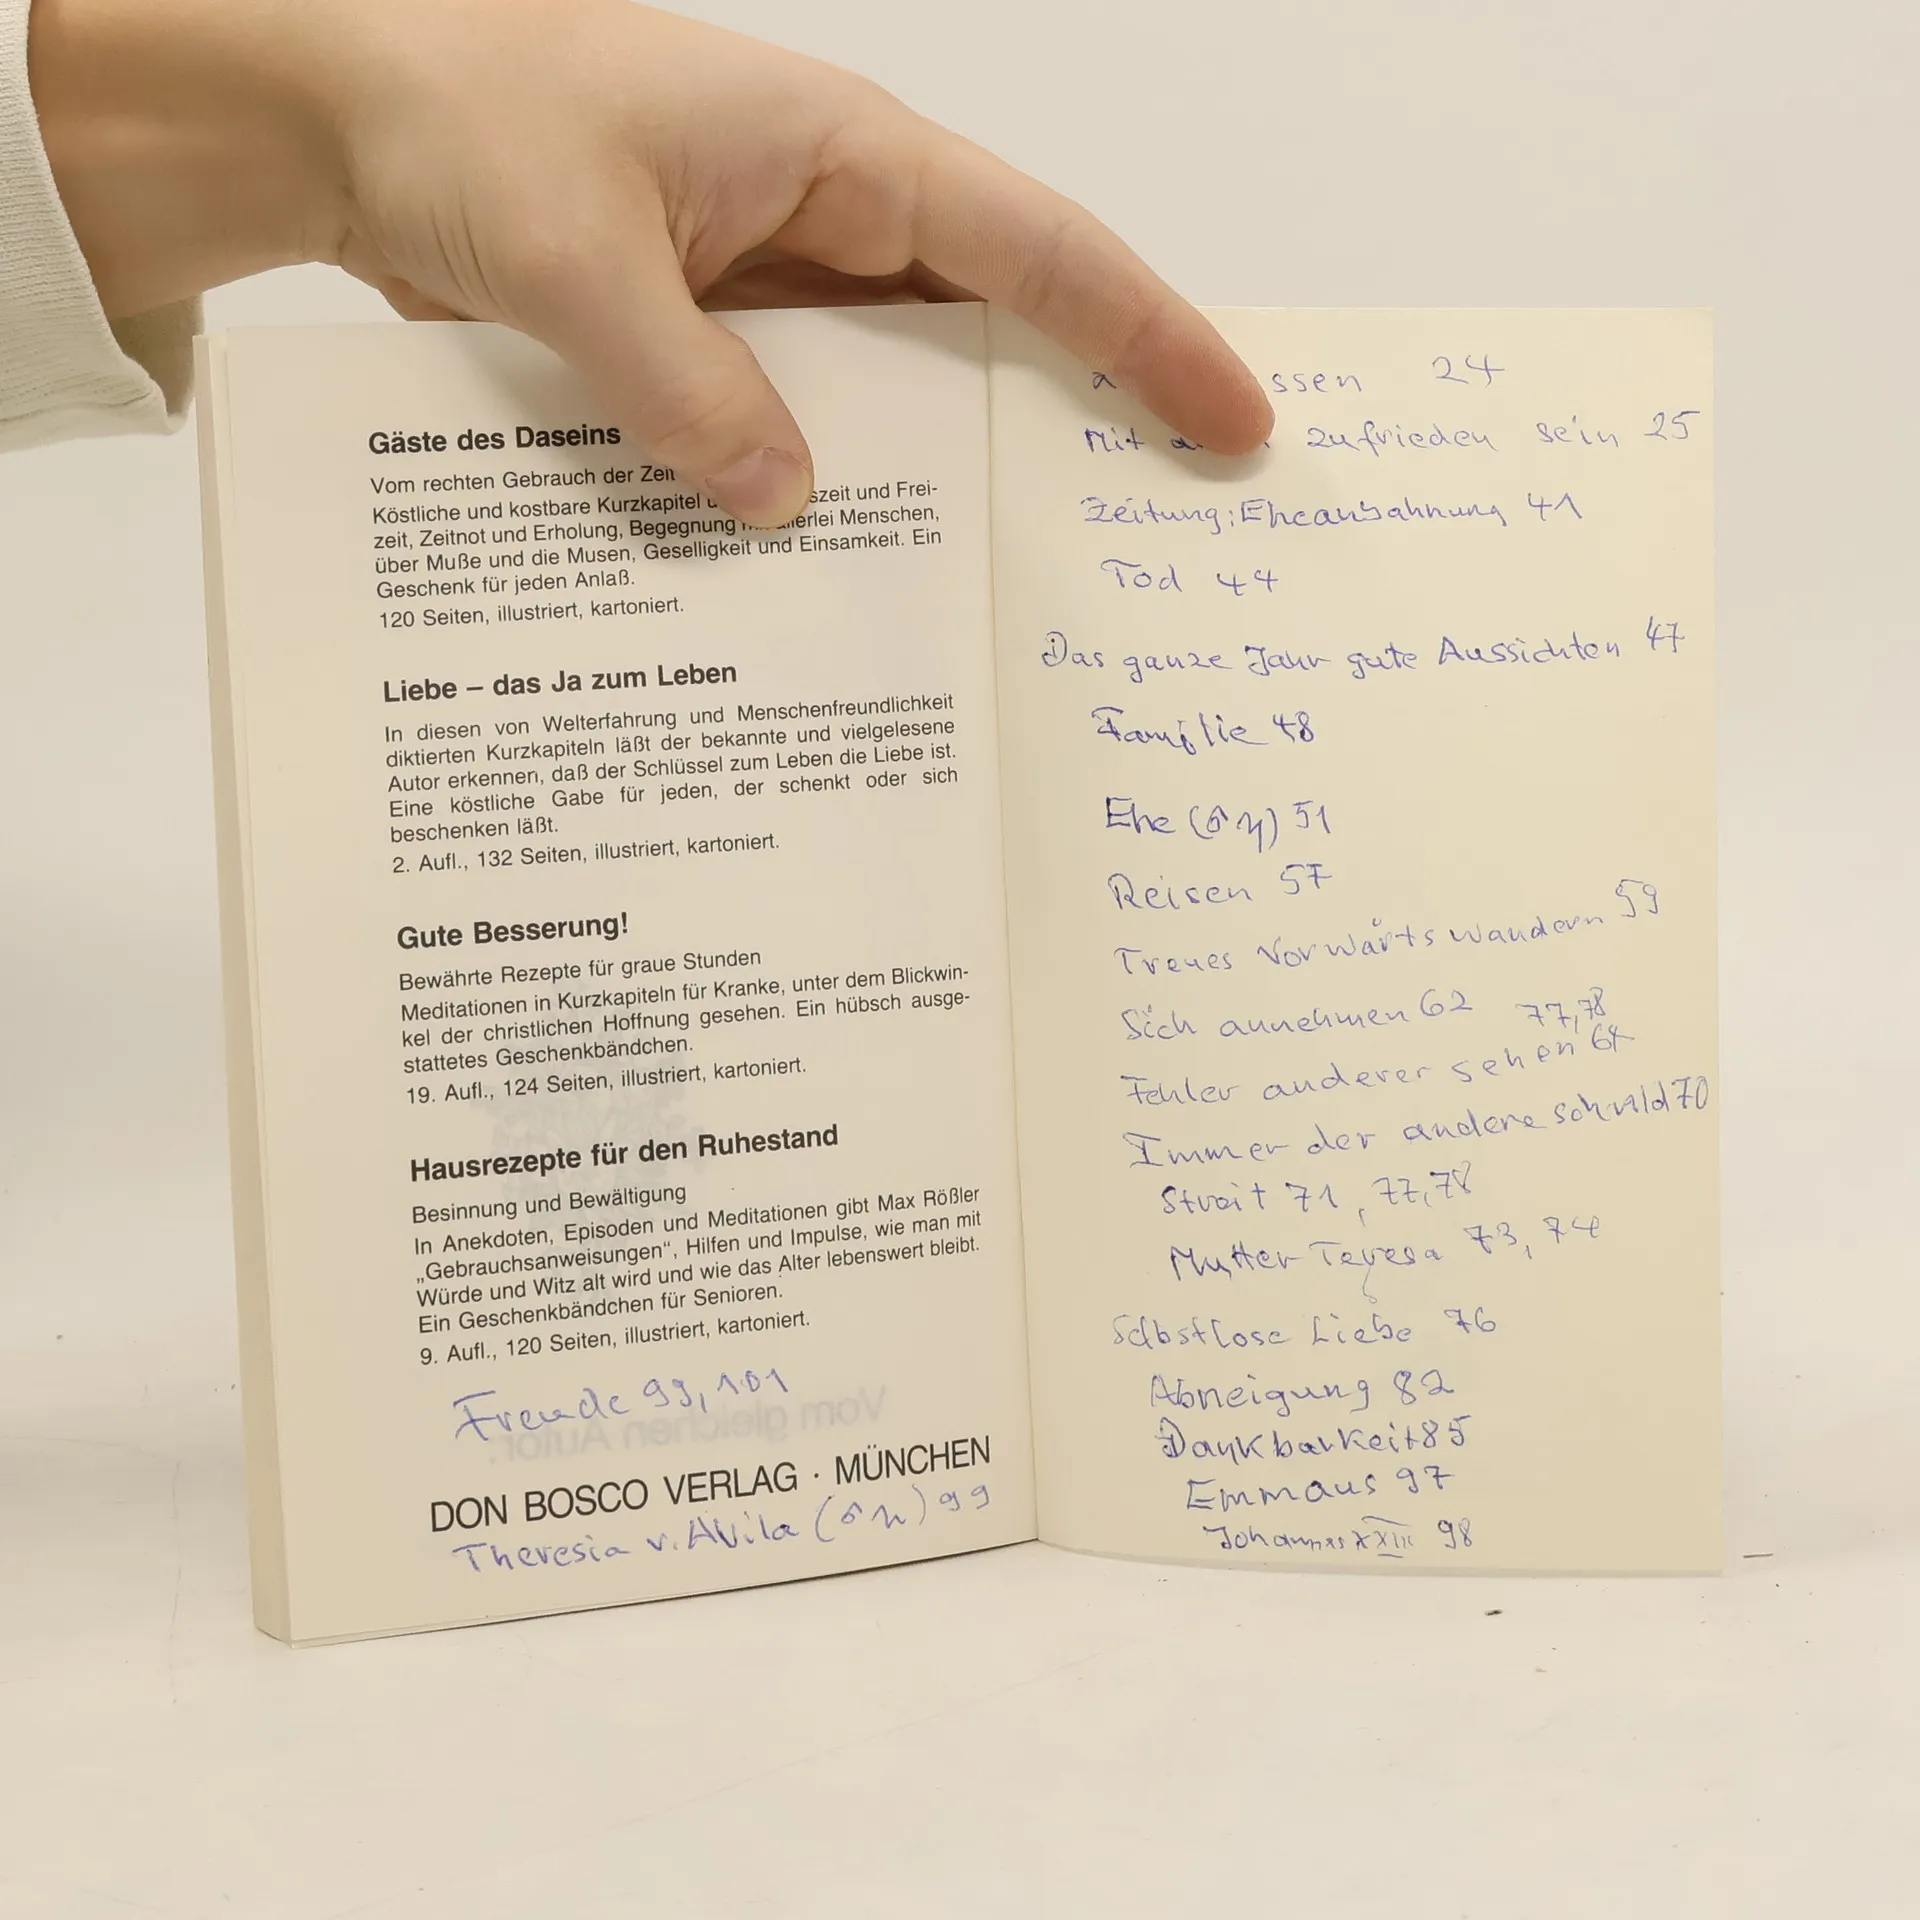 Gäste des Daseins
Vom rechten Gebrauch der Zeit
Köstliche und kostbare Kurzkapitel szeit und Frei-
zeit, Zeitnot und Erholung, Begegnung allerlei Menschen,
über Muße und die Musen, Geselligkeit und Einsamkeit. Ein
Geschenk für jeden Anlaß.
120 Seiten, illustriert, kartoniert.
Liebe – das Ja zum Leben
In diesen von Welterfahrung und Menschenfreundlichkeit
diktierten Kurzkapiteln läßt der bekannte und vielgelesene
Autor erkennen, daß der Schlüssel zum Leben die Liebe ist.
Eine köstliche Gabe für jeden, der schenkt oder sich
beschenken läßt.
2. Aufl., 132 Seiten, illustriert, kartoniert.
Gute Besserung!
Bewährte Rezepte für graue Stunden
Meditationen in Kurzkapiteln für Kranke, unter dem Blickwin-
kel der christlichen Hoffnung gesehen. Ein hübsch ausge-
stattetes Geschenkbändchen.
19. Aufl., 124 Seiten, illustriert, kartoniert.
Hausrezepte für den Ruhestand
Besinnung und Bewältigung
In Anekdoten, Episoden und Meditationen gibt Max Rößler
„Gebrauchsanweisungen“, Hilfen und Impulse, wie man mit
Würde und Witz alt wird und wie das Alter lebenswert bleibt.
Ein Geschenkbändchen für Senioren.
9. Aufl., 120 Seiten, illustriert, kartoniert.
Freude 99, 101
DON BOSCO VERLAG · MÜNCHEN
Theresia v. Avila 99
ssen 24
Mit zufrieden sein 25
Zeitung: Eheanbahnung 41
Tod 44
Das ganze Jahr gute Aussichten 47
Familie 48
Ehe 51
Reisen 57
Treues Vorwärtswandern 59
Sich annehmen 62 77, 78
Fehler anderer sehen 64
Immer der andere schuld 70
Streit 71, 77, 78
Mutter Teresa 73, 74
Selbstlose Liebe 76
Abneigung 82
Dankbarkeit 85
Emmaus 97
Johannes XXIII 98